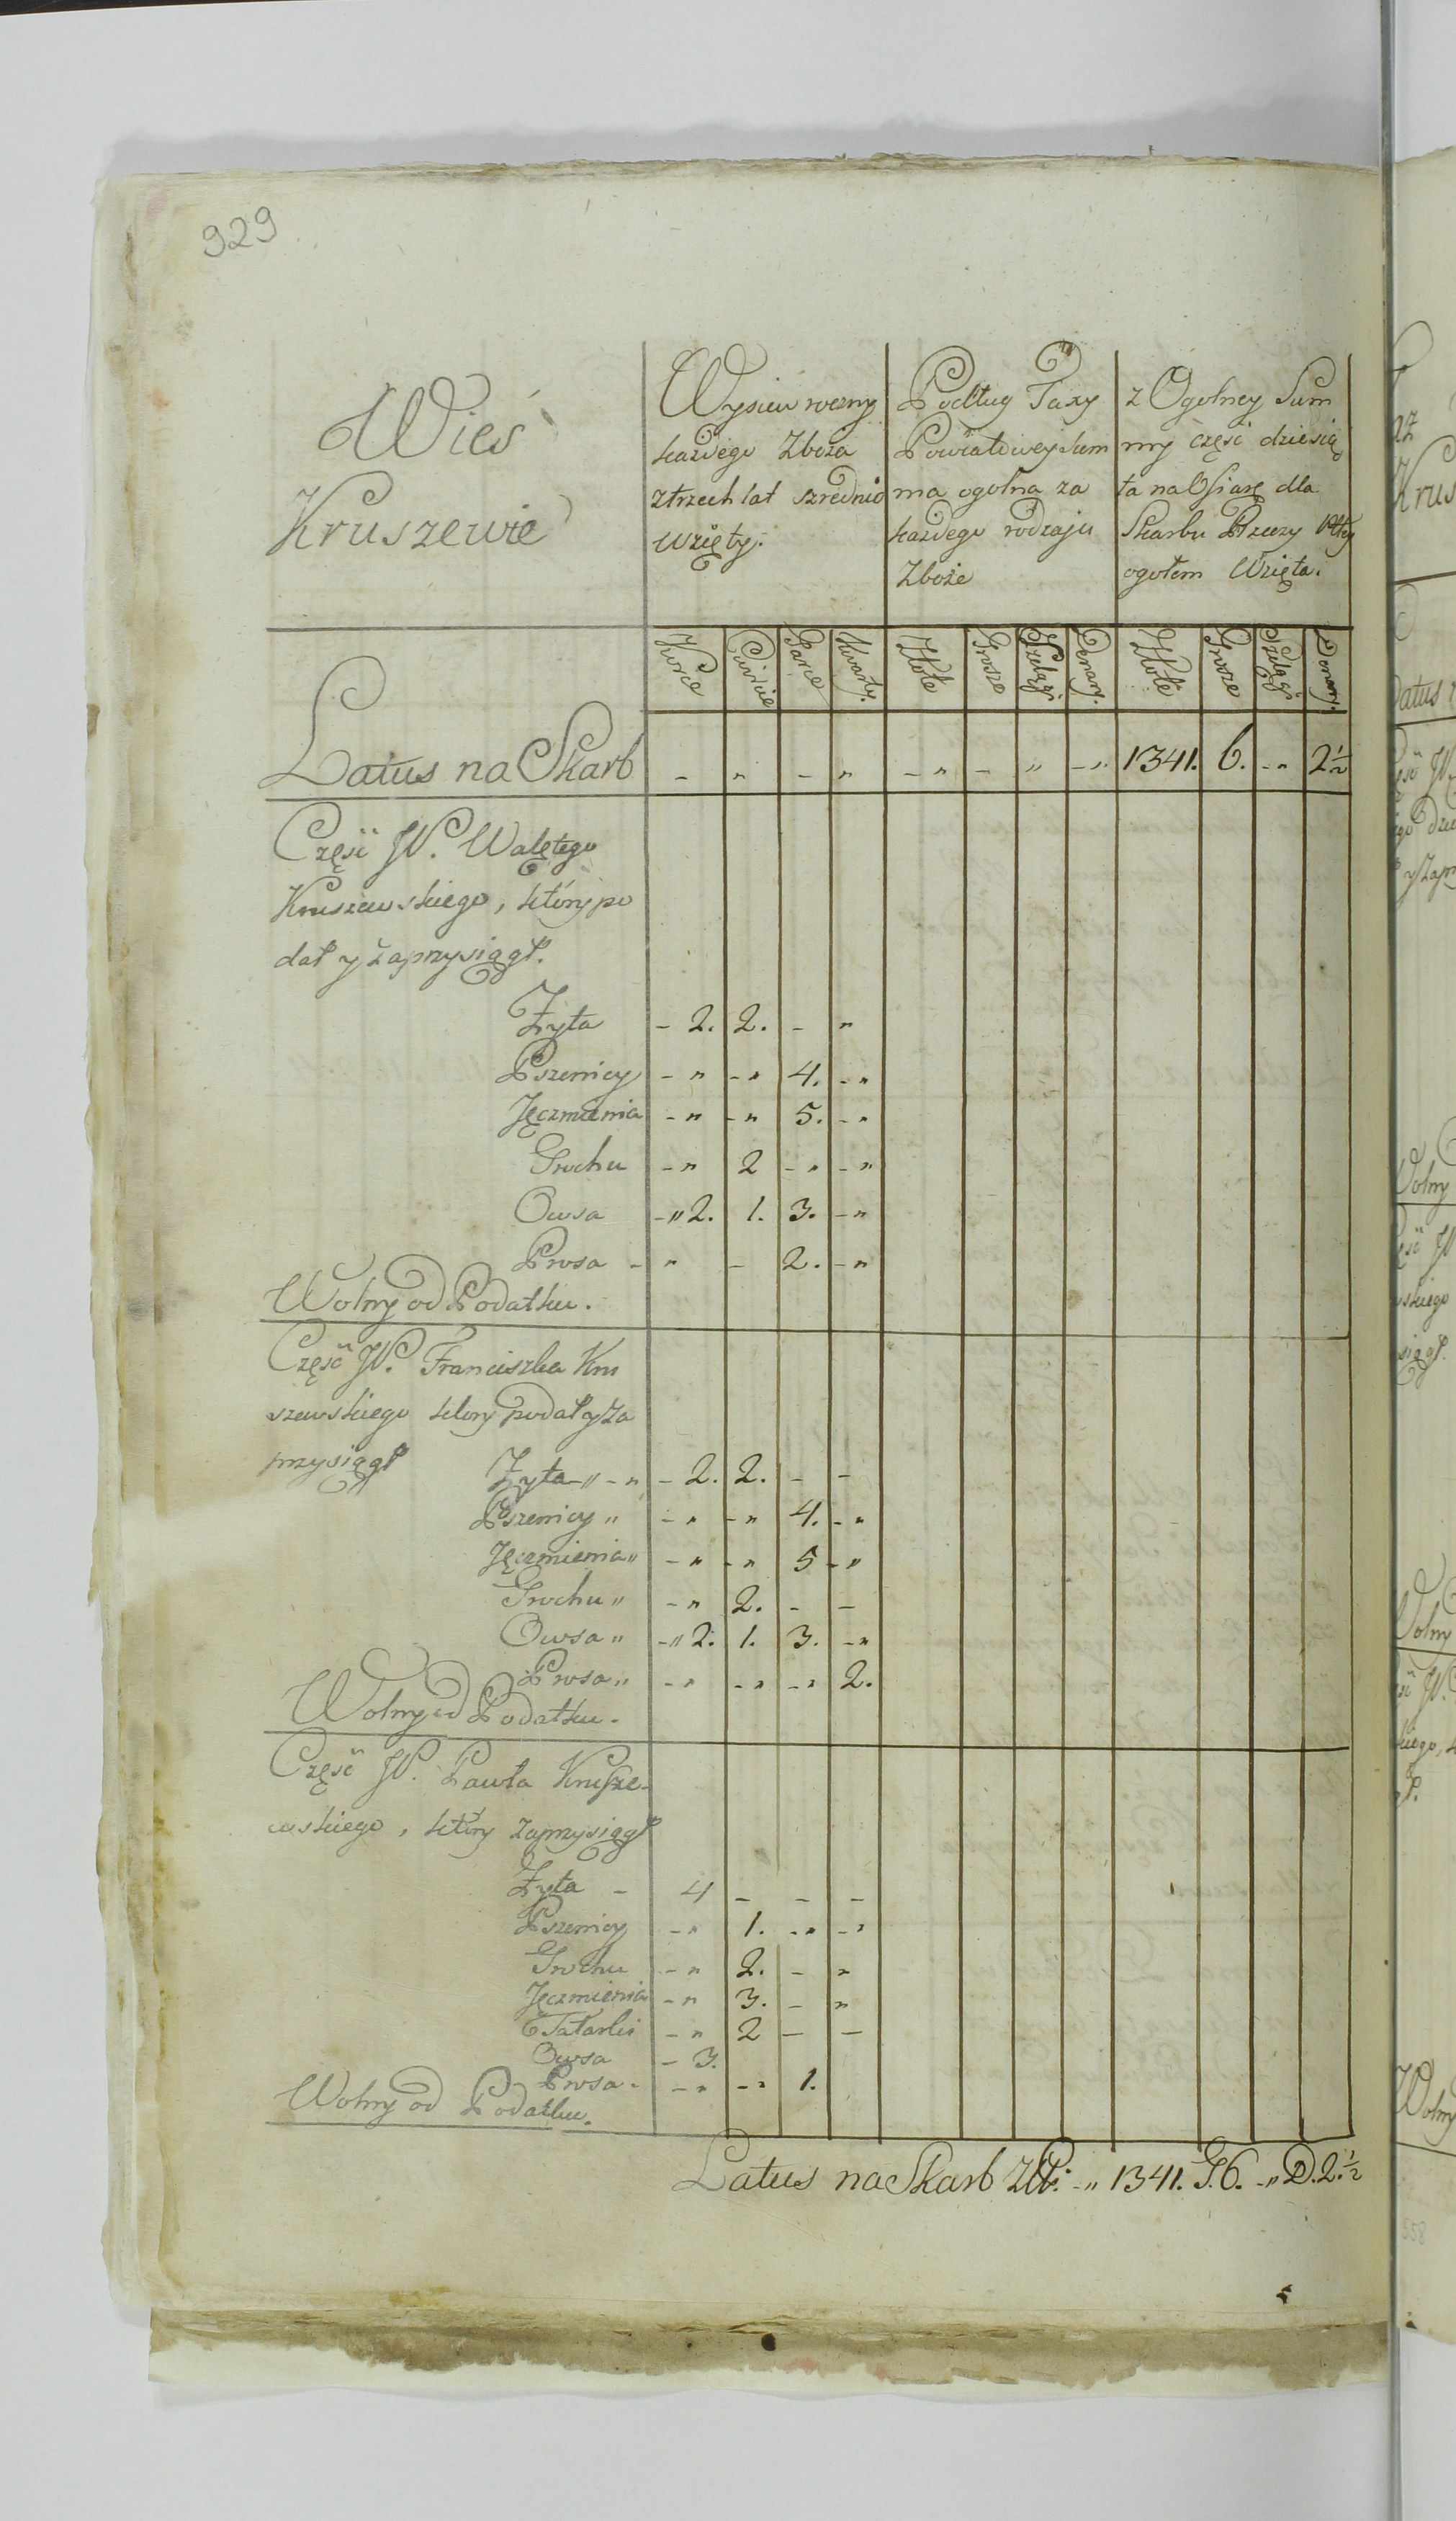 929
Wieś
Kruszewie
Wysiew roczny
każdego Zboża
z trzech lat szrednio
wzięty.
Podług Taxy
Powiatowey Sum
ma ogolna za
każdego rodzaju
Zboże
z Ogolney Sum
my część dziesią
ta na Ofiarę dla
Skarbu Rzeczy
ogołem Wzięta.
Korce Cwircie Garce Kwarty. Złote Grosze Szelągi Denary. Złote Grosze Szelągi Denary.
Latus na Skarb - " - " - " - " - " 1341. 6. - " 2 1/2
Część W. Walętego
Kruszewskiego, ktory po
dał y zaprzysiągł.
Żyta - 2. 2. - "
Pszenicy - " - " 4. - "
Jęczmienia - " - " 5. - "
Grochu - " 2 - " - "
Owsa - " 2. 1. 3. - "
Prosa - " - 2. - "
Wolny od Podatku.
Część W. Franciszka Kru
szewskiego ktory podał y za
przysiągł
Żyta - " - " - 2. 2. - -
Pszenicy " - " - " 4. - "
Jęczmienia " - " - " 5 - "
Grochu " - " 2. - -
Owsa " - " 2. 1. 3. - "
Prosa " - " - " - " 2.
Wolny od Podatku.
Część W. Pawła Krusze-
wskiego, ktory zaprzysiągł
Żyta - 4 - - -
Pszenicy - " 1. - " - "
Grochu - " 2. - "
Jęczmienia - " 3. - "
Tatarki - " 2 - -
Owsa - 3.
Prosa - - " - " 1.
Wolny od Podatku.
Latus na Skarb Złł: - " 1341. G. 6. - " D. 2. 1/2